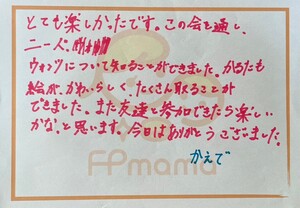 とても楽しかったです。この会を通し、
ニーズ、
ウォンツについて知ることができました。かるたも
絵が、かわいらしく、たくさん取ることが
できました。また友達と参加できたら楽しい
かな。と思います。今日はありがとうございました。
かえで
FPmama